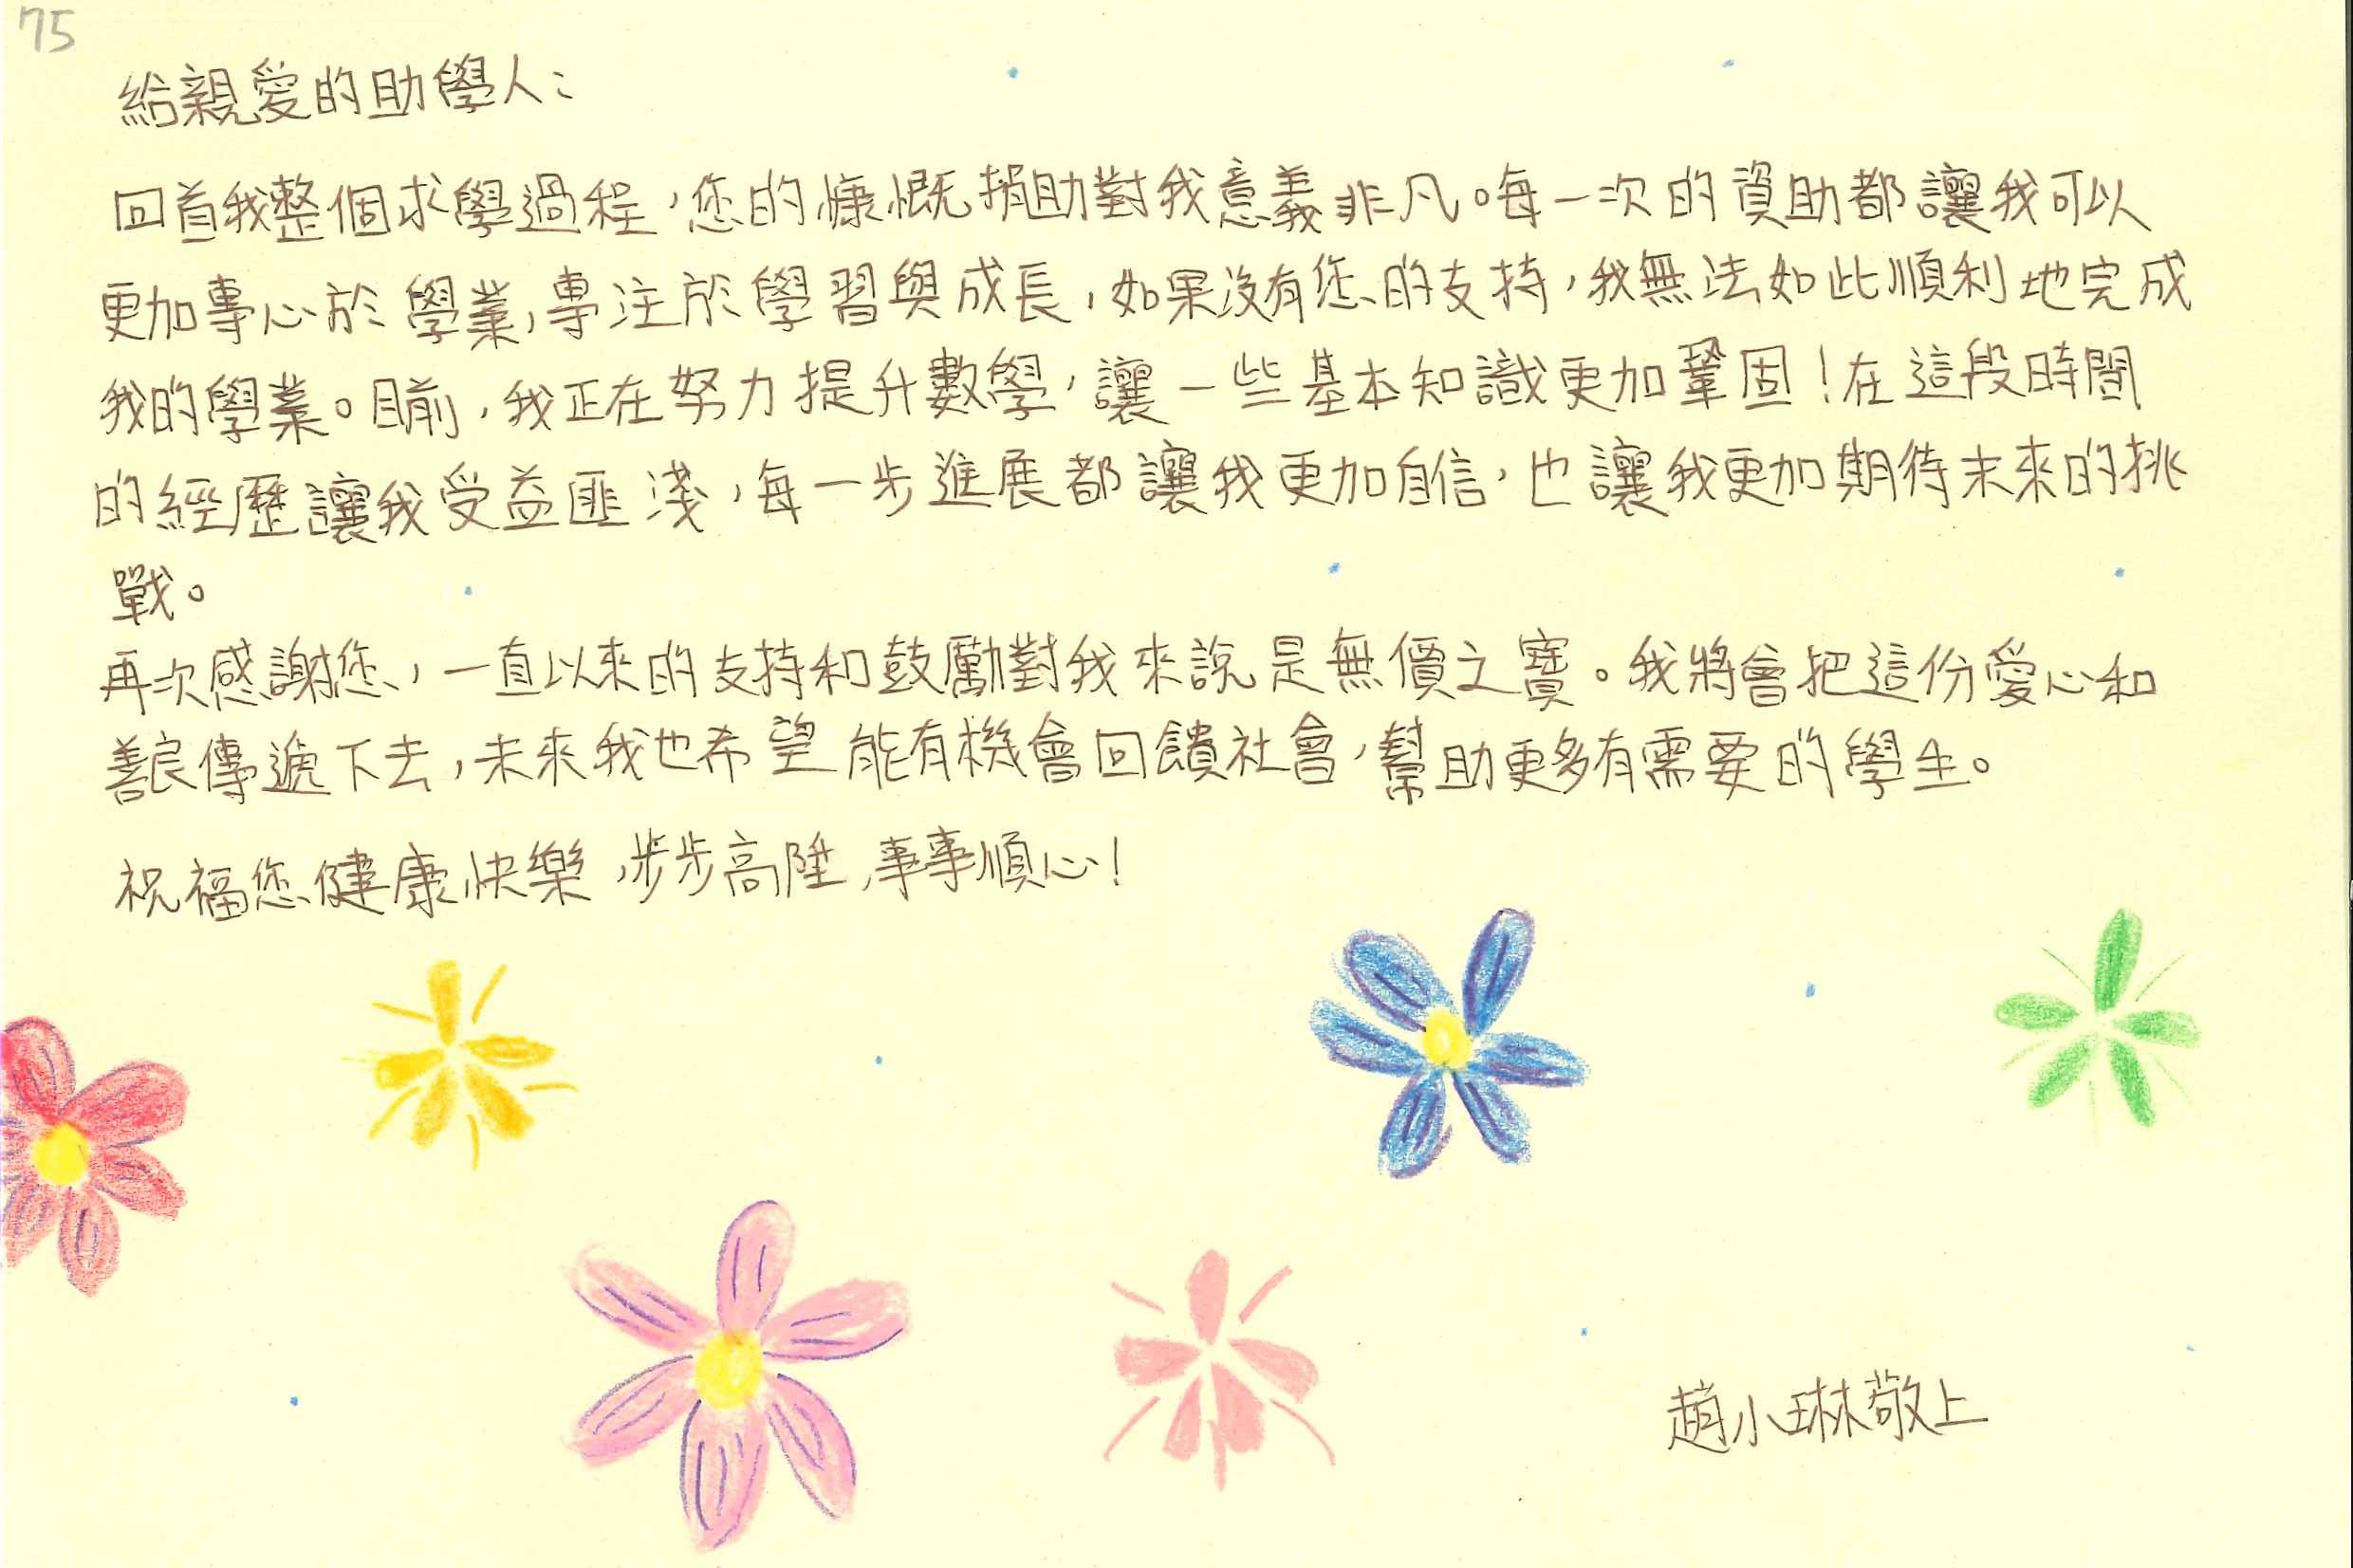 75
給親愛的助學人：
回首我整個求學過程，您的慷慨捐助對我意義非凡。每一次的資助都讓我可以
更加專心於學業，專注於學習與成長，如果沒有您的支持，我無法如此順利地完成
我的學業。目前，我正在努力提升數學，讓一些基本知識更加鞏固！在這段時間
的經歷讓我受益匪淺，每一步進展都讓我更加自信，也讓我更加期待未來的挑
戰。
再次感謝您，一直以來的支持和鼓勵對我來說是無價之寶。我將會把這份愛心和
善良傳遞下去，未來我也希望能有機會回饋社會，幫助更多有需要的學生。
祝福您健康快樂，步步高陞，事事順心！
趙小琳敬上